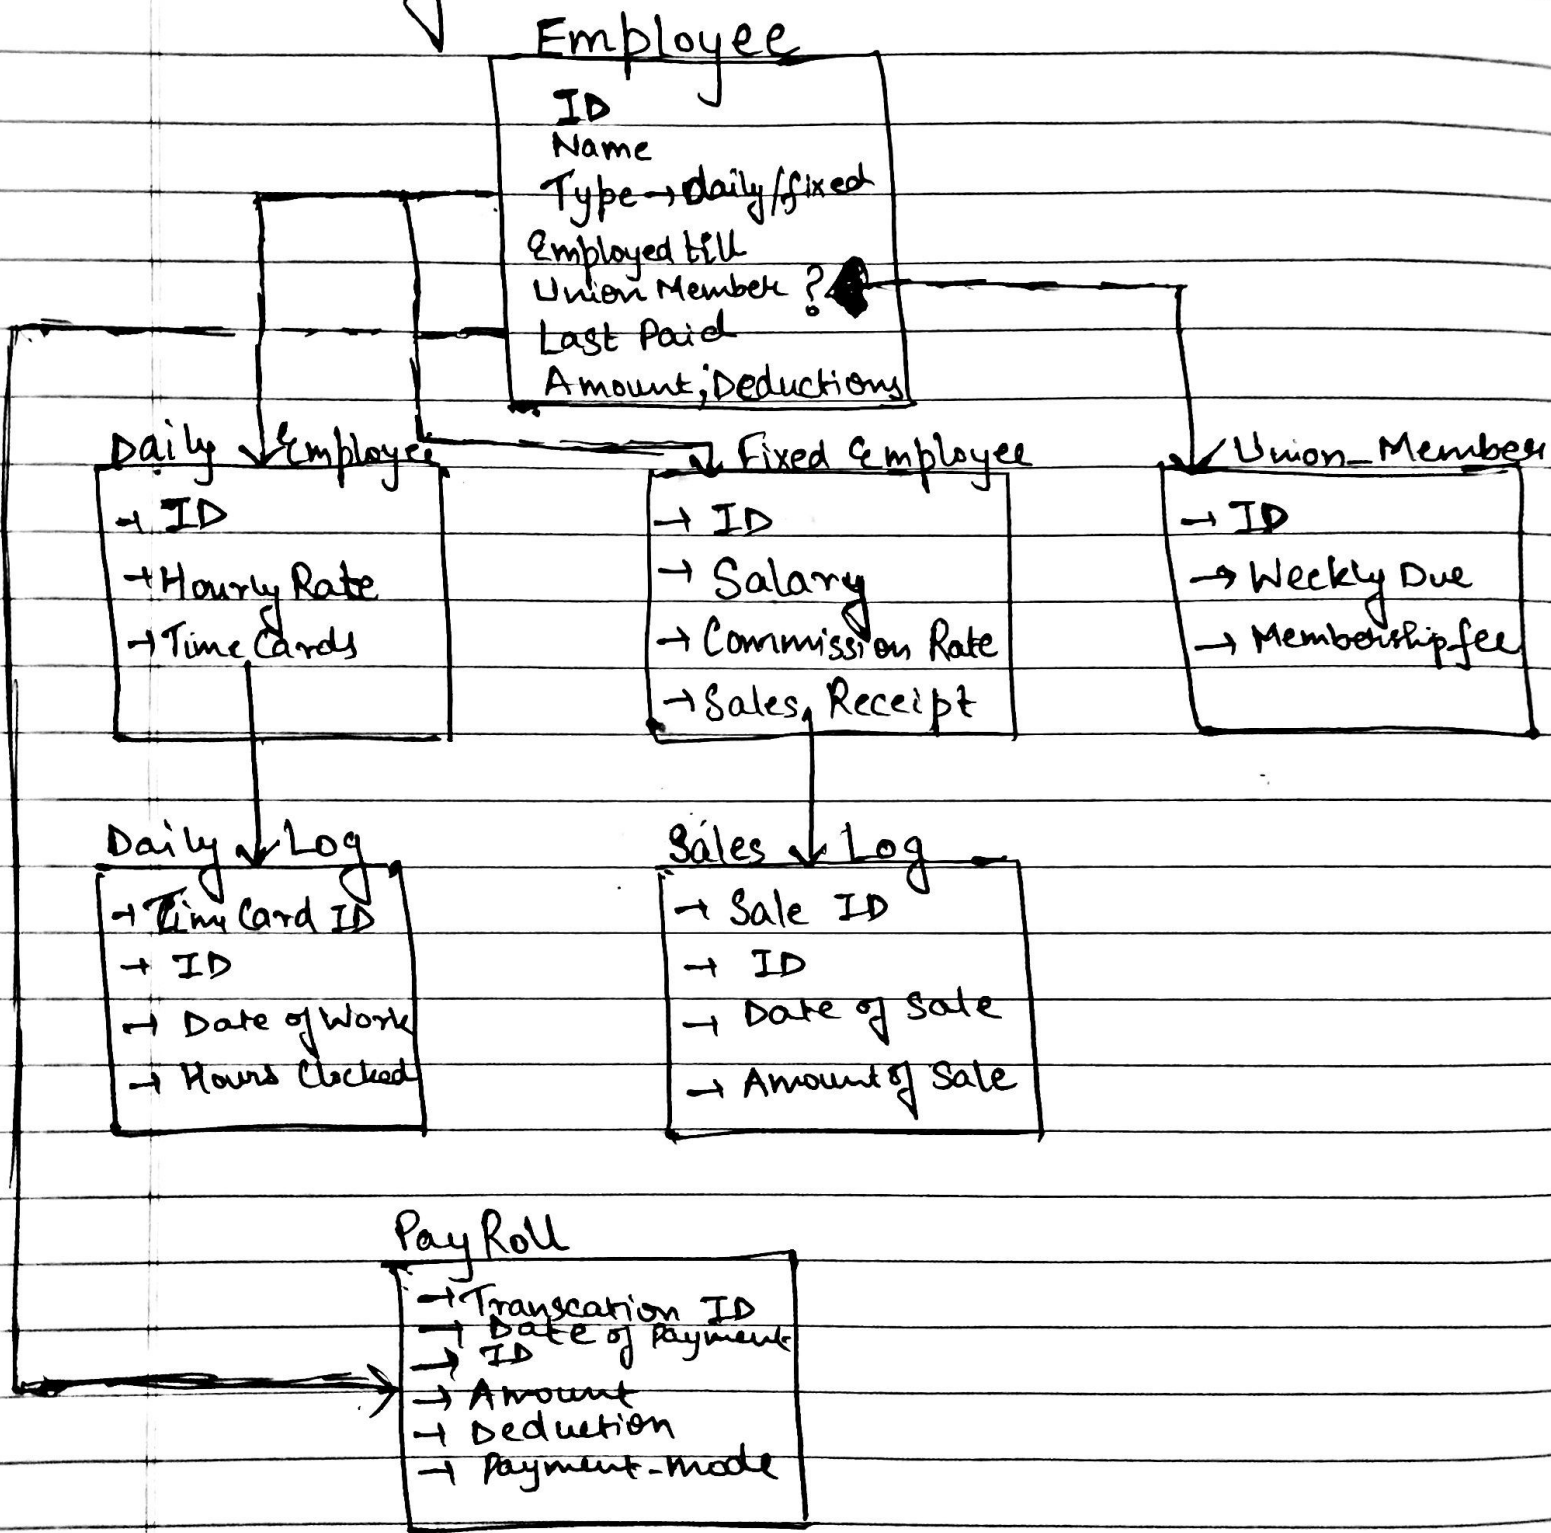 Employee
ID
Name
Type → daily/fixed
Employed till
Union Member ?
Last Paid
Amount; Deductions
Daily Employee
→ ID
→ Hourly Rate
→ Time Cards
Fixed Employee
→ ID
→ Salary
→ Commission Rate
→ Sales Receipt
Union_Member
→ ID
→ Weekly Due
→ Membership fee
Daily Log
→ Time Card ID
→ ID
→ Date of Work
→ Hours Clocked
Sales Log
→ Sale ID
→ ID
→ Date of Sale
→ Amount of Sale
PayRoll
→ Transcation ID
→ Date of Payment
→ ID
→ Amount
→ Deduction
→ Payment_mode